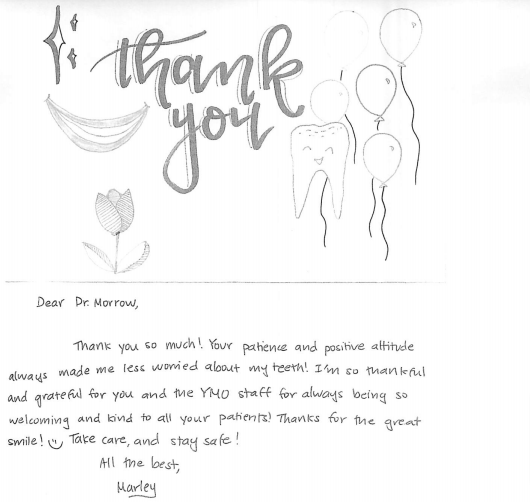 thank
you
Dear Dr. Morrow,
Thank you so much! Your patience and positive attitude
always made me less worried about my teeth! I'm so thankful
and grateful for you and the YMO staff for always being so
welcoming and kind to all your patients! Thanks for the great
smile! Take care, and stay safe!
All the best,
Marley